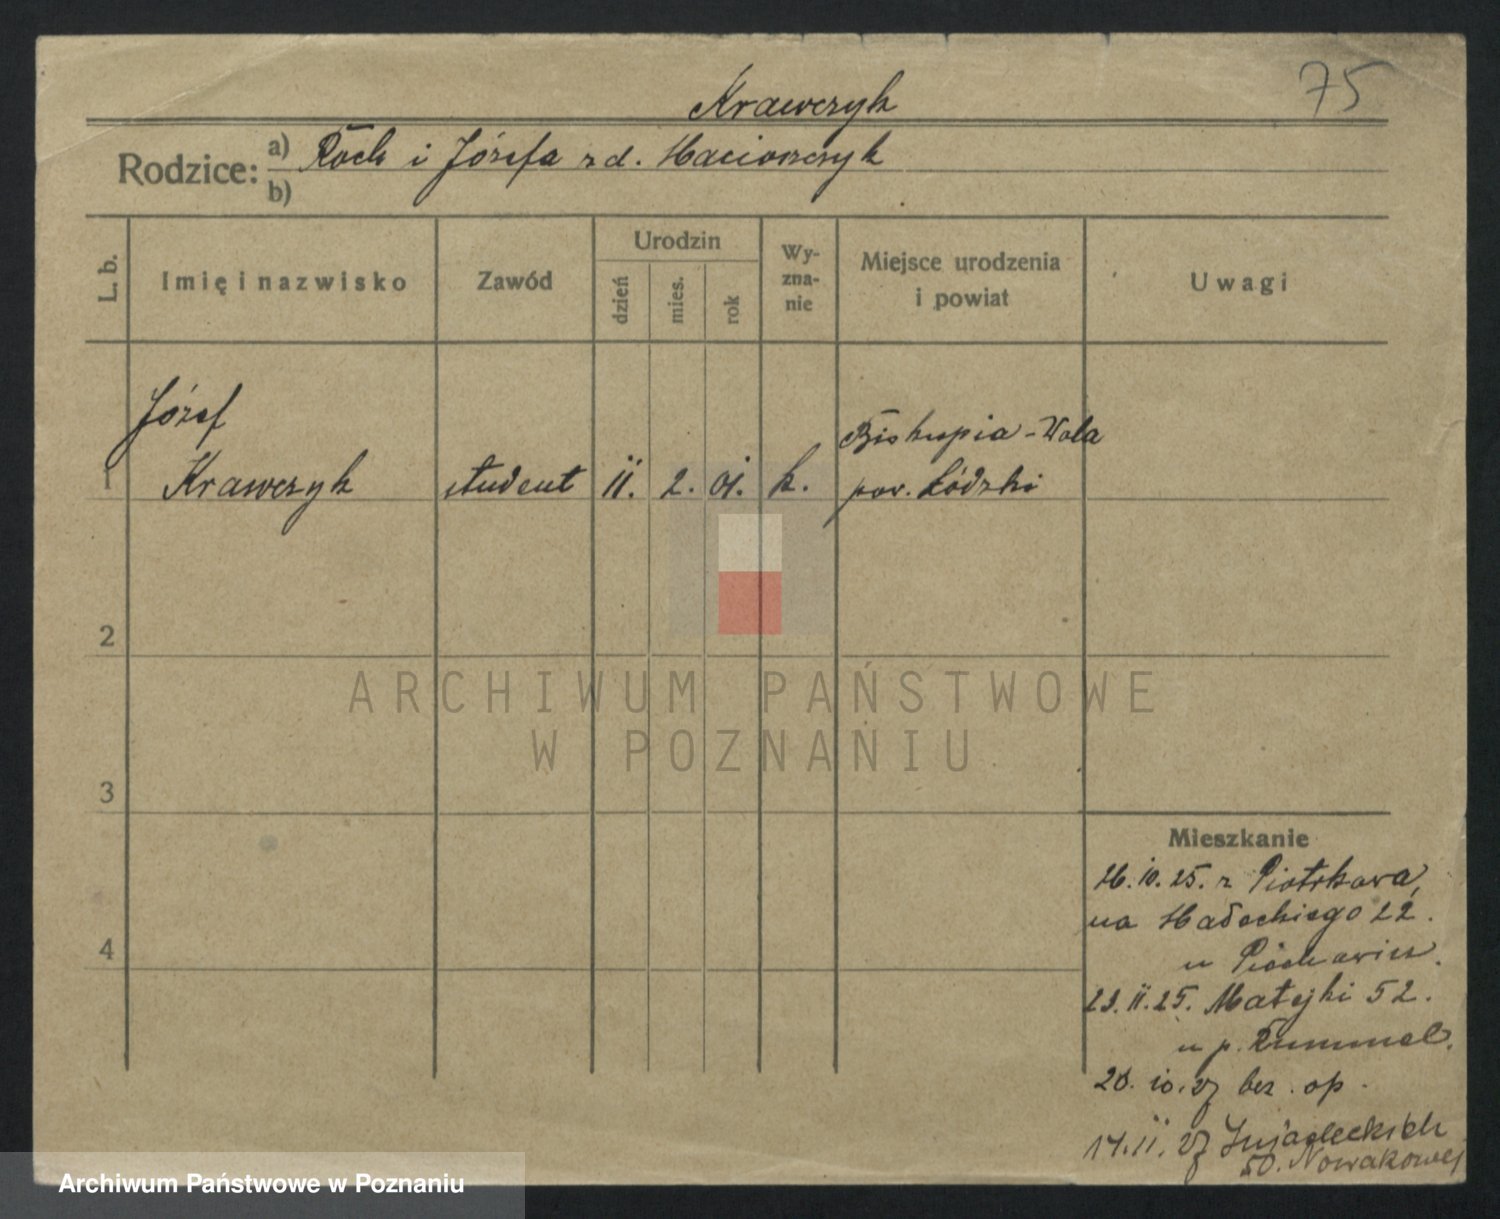 75
Krawczyk
Rodzice: a) Roch i Józefa zd. Maciorczyk
b)
L. b.
Imię i nazwisko
Zawód
Urodzin
dzień
mies.
rok
Wy-
zna-
nie
Miejsce urodzenia
i powiat
Uwagi
Józef
1 Krawczyk
student
11.
2.
01.
k.
Biskupia-Wola
pow. Łódzki
2
3
4
Mieszkanie
26.10.25. z Piotrkowa,
na Małeckiego 22.
u
23.11.25. Matejki 52.
u p. Rummel.
20.10.27 bez. op.
14.11.27 Śniadeckich
50. Nowakowej
ARCHIWUM PAŃSTWOWE
W POZNANIU
Archiwum Państwowe w Poznaniu